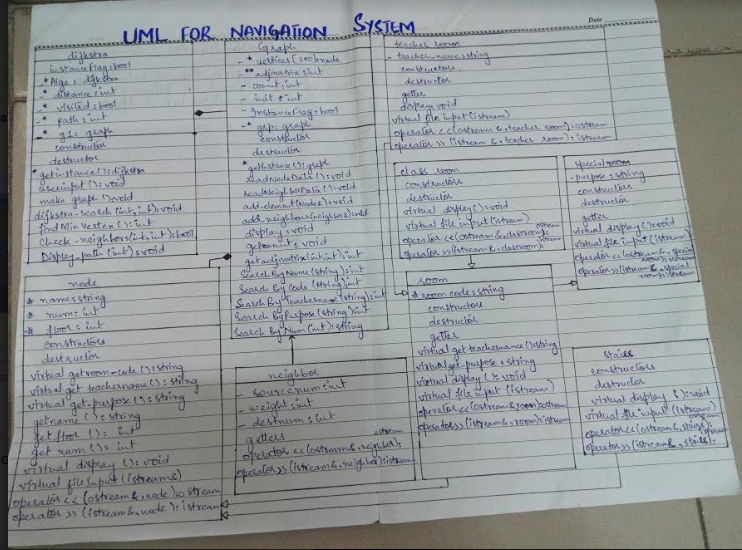 Date
UML FOR NAVIGATION SYSTEM
dijkstra
instanceFlag: bool
-* Algo: dijkstra
-* distance: int
-* visited: bool
-* path: int
-* g1: graph
constructor
destructor
* getinstance(): dijkstra
userinput(): void
make graph(): void
dijkstra-search(int, int): void
find Min Vertex(): int
Check-neighbors(int, int): bool
Display-path(int): void
Graph
-* vertices[200]: node
-** adjmatrix: int
- count: int
- init: int
- InstanceFlag: bool
-* grp: graph
constructor
destructor
* getInstance(): graph
readNodeData(): void
readNeighborData(): void
add-element(Node&): void
add-neighbour(neighbor&): void
display: void
getcount: void
getadjmatrix(int, int): int
Search By Name(string): int
Search By Code(string): int
Search By Teachername(string): int
Search By Purpose(string): int
Search By Num(int): string
teacher room
- teacher-name: string
constructors
destructor
getter
display: void
virtual file input(istream)
operator <<(ostream &, teacher room): ostream
operator >>(istream &, teacher room): istream
class room
constructors
destructor
virtual display(): void
virtual file input(istream)
operator <<(ostream &, classroom): ostream
operator >>(istream &, classroom): istream
special room
- purpose: string
constructors
destructor
getter
virtual display(): void
virtual file input(istream)
operator <<(ostream &, special room): ostream
operator >>(istream &, special room): istream
node
# name: string
# num: int
# floor: int
constructors
destructor
virtual getroom-code(): string
virtual get teachername(): string
virtual get-purpose(): string
getname(): string
get floor(): int
get num(): int
virtual display(): void
virtual fileInput(istream&)
operator <<(ostream &, node): ostream
operator >>(istream &, node): istream
neighbor
- sourcenum: int
- weight: int
- destnum: int
getters
operator <<(ostream &, neighbor): ostream
operator >>(istream &, neighbor): istream
room
# room code: string
constructors
destructor
getter
virtual get teachername(): string
virtual get-purpose: string
virtual display(): void
virtual file input(istream)
operator <<(ostream &, room): ostream
operator >>(istream &, room): istream
stairs
constructors
destructor
virtual display(): void
virtual file input(istream)
operator <<(ostream &, stairs): ostream
operator >>(istream &, stairs): istream